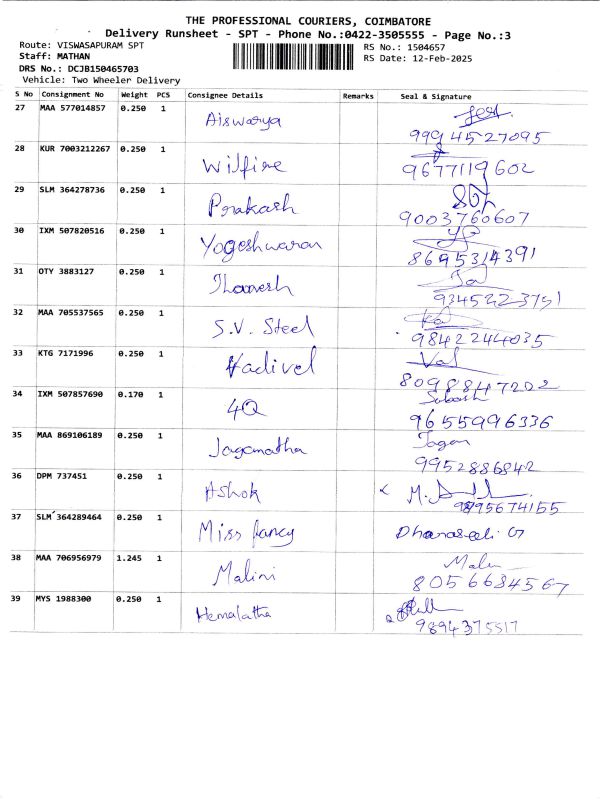 THE PROFESSIONAL COURIERS, COIMBATORE
Delivery Runsheet - SPT - Phone No.:0422-3505555 - Page No.:3
Route: VISWASAPURAM SPT
RS No.: 1504657
Staff: MATHAN
RS Date: 12-Feb-2025
DRS No.: DCJB150465703
Vehicle: Two Wheeler Delivery
S No Consignment No Weight PCS Consignee Details Remarks Seal & Signature
27 MAA 577014857 0.250 1 Aiswarya
9994527095
28 KUR 7003212267 0.250 1 Wilfine
9677119602
29 SLM 364278736 0.250 1 Prakash
9003760607
30 IXM 507820516 0.250 1 Yogeshwaran
8695314391
31 OTY 3883127 0.250 1 Thanesh
9345223751
32 MAA 705537565 0.250 1 S.V. Steel
9842244035
33 KTG 7171996 0.250 1 Vadivel
8098847202
34 IXM 507857690 0.170 1 4Q Subash
9655996336
35 MAA 869106189 0.250 1 Jaganatha Jagan
9952886842
36 DPM 737451 0.250 1 Ashok
9895674155
37 SLM 364289464 0.250 1 Miss fancy
38 MAA 706956979 1.245 1 Malini
8056684567
39 MYS 1988300 0.250 1 Hemalatha
9894375517